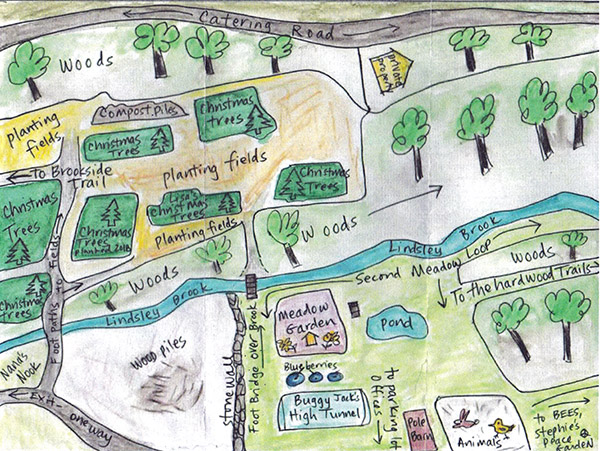 Catering Road
Woods
Private
Property
Compost Piles
Christmas
Trees
Planting
fields
Christmas
Trees
Planting fields
← To Brookside
Trail
Christmas
Trees
Lisa's
Christmas
Trees
Christmas
Trees
Christmas
Trees
Planted 2018
Planting fields
Woods
Lindsley Brook
Woods
Second Meadow Loop
Woods
To the hardwood Trails →
Christmas
Trees
Foot paths to Fields
Lindsley Brook
Nana's
Nook
Wood Piles
Stonewall
Foot Bridge over Brook
Meadow
Garden
Pond
Blueberries
Buggy Jack's
High Tunnel
to parking lot
offices
Pole
Barn
Animals
to BEES,
Stephie's
Peace
Garden
← Exit- one way